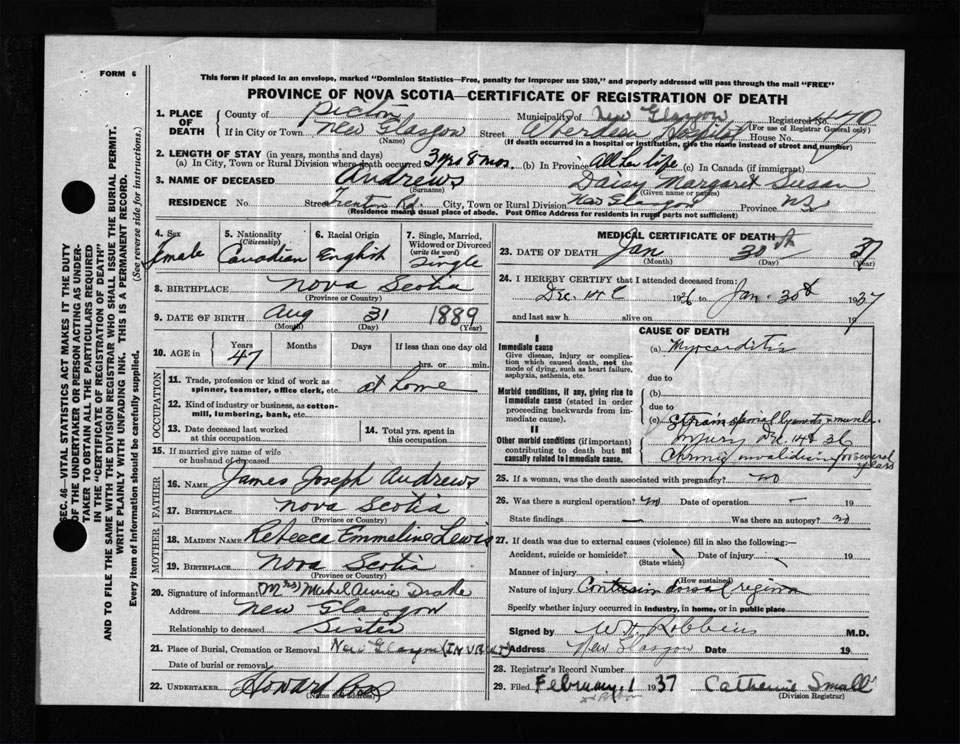 FORM 6
This form if placed in an envelope, marked "Dominion Statistics—Free, penalty for improper use $300," and properly addressed will pass through the mail "FREE"
PROVINCE OF NOVA SCOTIA—CERTIFICATE OF REGISTRATION OF DEATH
SEC. 46—VITAL STATISTICS ACT MAKES IT THE DUTY
OF THE UNDERTAKER OR PERSON ACTING AS UNDER-
TAKER TO OBTAIN ALL THE PARTICULARS REQUIRED
IN THE "CERTIFICATE OF REGISTRATION OF DEATH"
AND TO FILE THE SAME WITH THE DIVISION REGISTRAR WHO SHALL ISSUE THE BURIAL PERMIT.
WRITE PLAINLY WITH UNFADING INK. THIS IS A PERMANENT RECORD.
Every item of Information should be carefully supplied. (See reverse side for instructions.)
1. PLACE OF DEATH County of Pictou Municipality of New Glasgow Registered No.
(For use of Registrar General only)
If in City or Town New Glasgow Street Aberdeen Hospital House No.
(Name) (If death occurred in a hospital or institution, give the name instead of street and number)
2. LENGTH OF STAY (in years, months and days)
(a) In City, Town or Rural Division where death occurred 3 yrs 8 mos. (b) In Province All her life (c) In Canada (if immigrant)
3. NAME OF DECEASED Andrews Daisy Margaret Susan
(Surname) (Given name or names)
RESIDENCE No. 7 Street Trenton Rd. City, Town or Rural Division New Glasgow Province NS
(Residence means usual place of abode. Post Office Address for residents in rural parts not sufficient)
4. Sex female
5. Nationality (Citizenship) Canadian
6. Racial Origin English
7. Single, Married, Widowed or Divorced (write the word) Single
8. BIRTHPLACE Nova Scotia
(Province or Country)
9. DATE OF BIRTH Aug 31 1889
(Month) (Day) (Year)
10. AGE in Years 47 Months Days If less than one day old
hrs. or min.
OCCUPATION
11. Trade, profession or kind of work as spinner, teamster, office clerk, etc. at home
12. Kind of industry or business, as cotton-mill, lumbering, bank, etc.
13. Date deceased last worked at this occupation
14. Total yrs. spent in this occupation
15. If married give name of wife or husband of deceased
FATHER
16. Name James Joseph Andrews
17. Birthplace Nova Scotia
(Province or Country)
MOTHER
18. Maiden Name Rebecca Emmeline Lewis
19. Birthplace Nova Scotia
(Province or Country)
20. Signature of informant (Mrs) Mabel Annie Drake
Address New Glasgow
Relationship to deceased Sister
21. Place of Burial, Cremation or Removal New Glasgow (IN VAULT)
Date of burial or removal
22. UNDERTAKER Howard
(Name and address)
MEDICAL CERTIFICATE OF DEATH
23. DATE OF DEATH Jan 30th 37
(Month) (Day) (Year)
24. I HEREBY CERTIFY that I attended deceased from:
Dec. 14 1936 to Jan. 30th 1937
and last saw h alive on 19
CAUSE OF DEATH
I
Immediate cause
Give disease, injury or complication which caused death, not the mode of dying, such as heart failure, asphyxia, asthenia, etc.
(a) Myocarditis
due to
Morbid conditions, if any, giving rise to immediate cause (stated in order proceeding backwards from immediate cause).
(b)
due to
(c) Strain injury Dec. 14th 36
II
Other morbid conditions (if important) contributing to death but not causally related to immediate cause.
Chronic invalidism for several years
25. If a woman, was the death associated with pregnancy? no
26. Was there a surgical operation? no Date of operation — 19
State findings — Was there an autopsy? no
27. If death was due to external causes (violence) fill in also the following:—
Accident, suicide or homicide? Date of injury 19
(State which)
Manner of injury
(How sustained)
Nature of injury Contusion dorsal region
Specify whether injury occurred in industry, in home, or in public place
Signed by W. H. Robbins M.D.
Address New Glasgow Date 19
28. Registrar's Record Number
29. Filed February, 1 1937 Catherine Small
(Division Registrar)